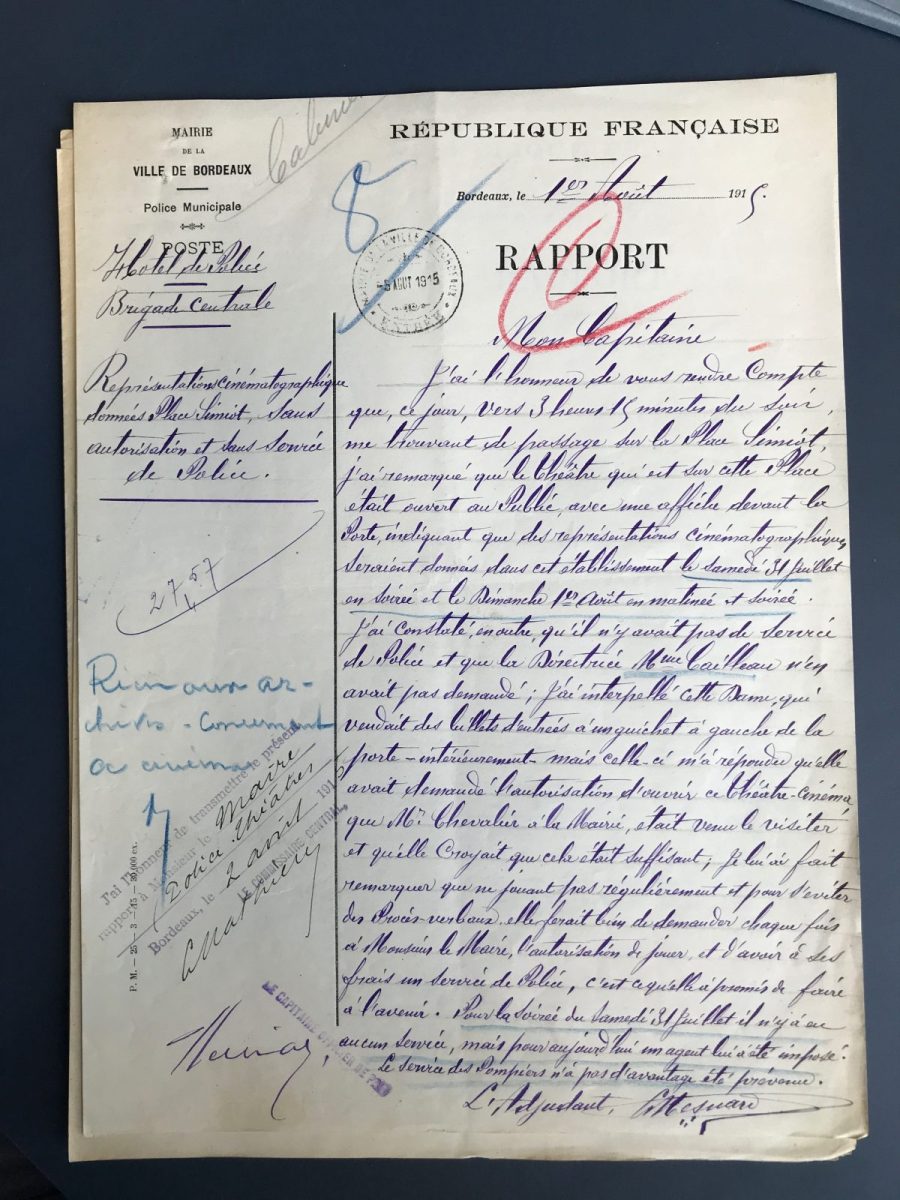 MAIRIE
DE LA
VILLE DE BORDEAUX
Police Municipale
POSTE
Hotel de Police
Brigade Centrale
Représentations cinématographiques
données Place Simiot, sans
autorisation et sans service
de Police.
2757
Rien aux ar-
chives - concernant
ce cinéma
J'ai l'honneur de transmettre le présent
rapport à Monsieur le Maire
Police Théâtres
Bordeaux, le 2 août 1915
LE COMMISSAIRE CENTRAL,
P. M. — 25 - 3 - 15 — 20,000 ex.
LE CAPITAINE OFFICIER DE PAIX
8
RÉPUBLIQUE FRANÇAISE
Bordeaux, le 1er Août 1915.
MAIRIE DE LA VILLE DE BORDEAUX
AOUT 1915
ENTRÉE
RAPPORT
Mon Capitaine
J'ai l'honneur de vous rendre Compte
que, ce jour, vers 3 heures 15 minutes du soir,
me trouvant de passage sur la Place Simiot,
j'ai remarqué que le théâtre qui est sur cette Place
était ouvert au Public, avec une affiche devant la
Porte, indiquant que des représentations cinématographiques
seraient données dans cet établissement le samedi 31 Juillet
en soirée et le Dimanche 1er Août en matinée et soirée.
J'ai constaté, en outre, qu'il n'y avait pas de service
de Police et que la Directrice Mme Cailleau n'en
avait pas demandé; J'ai interpellé cette Dame, qui
vendait des billets d'entrées à un guichet à gauche de la
porte - intérieurement - mais celle-ci m'a répondu qu'elle
avait demandé l'autorisation d'ouvrir ce théâtre-cinéma,
que Mr Chevalier à la Mairie, était venu le visiter
et qu'elle Croyait que cela était suffisant; Je lui ai fait
remarquer que ne jouant pas régulièrement et pour s'éviter
des Procès-verbaux, elle ferait bien de demander chaque fois
à Monsieur le Maire, l'autorisation de jouer, et d'avoir à ses
frais un service de Police, c'est ce qu'elle a promis de faire
à l'avenir. Pour la soirée du samedi 31 Juillet il n'y a eu
aucun service, mais pour aujourd'hui un agent lui a été imposé.
Le service des Pompiers n'a pas d'avantage été prévenu.
L'Adjudant, Mesnard